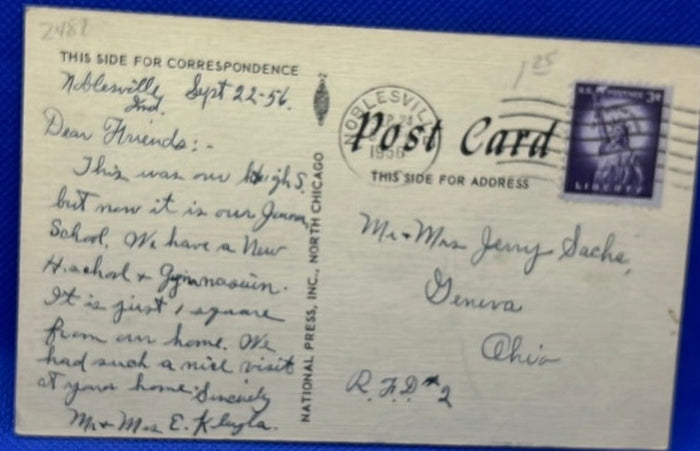 2481
THIS SIDE FOR CORRESPONDENCE
Noblesville, Sept 22-56.
Ind.
Dear Friends:-
This was our High S.
but now it is our
School. We have a New
H. school + Gymnasium.
It is just 1 square
from our home. We
had such a nice visit
at your home. Sincerely
Mr + Mrs E.
NATIONAL PRESS, INC., NORTH CHICAGO
1 25
NOBLESVILLE
1956
U.S. POSTAGE 3¢
LIBERTY
Post Card
THIS SIDE FOR ADDRESS
Mr + Mrs Jerry Sacha,
Geneva
Ohio
R.F.D. #2